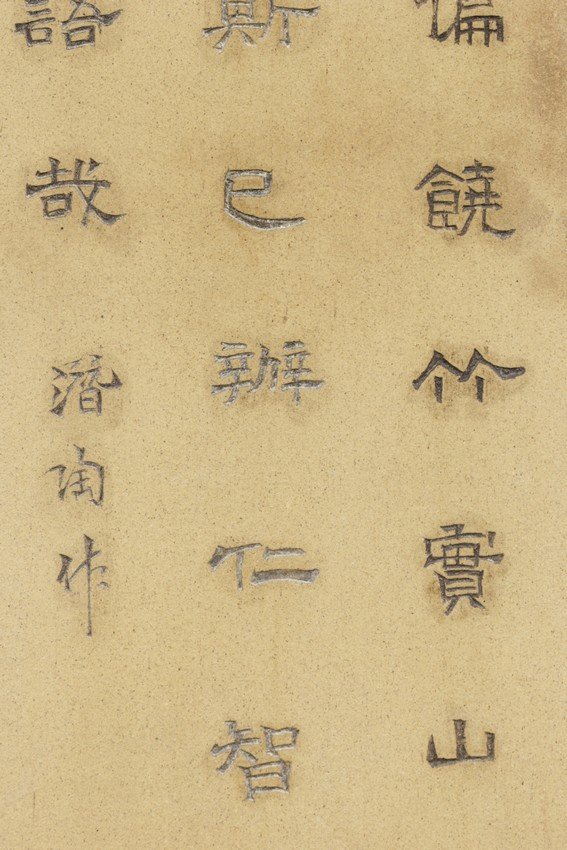 偏饒竹實山
斯已辨仁智
語哉
潛陶作